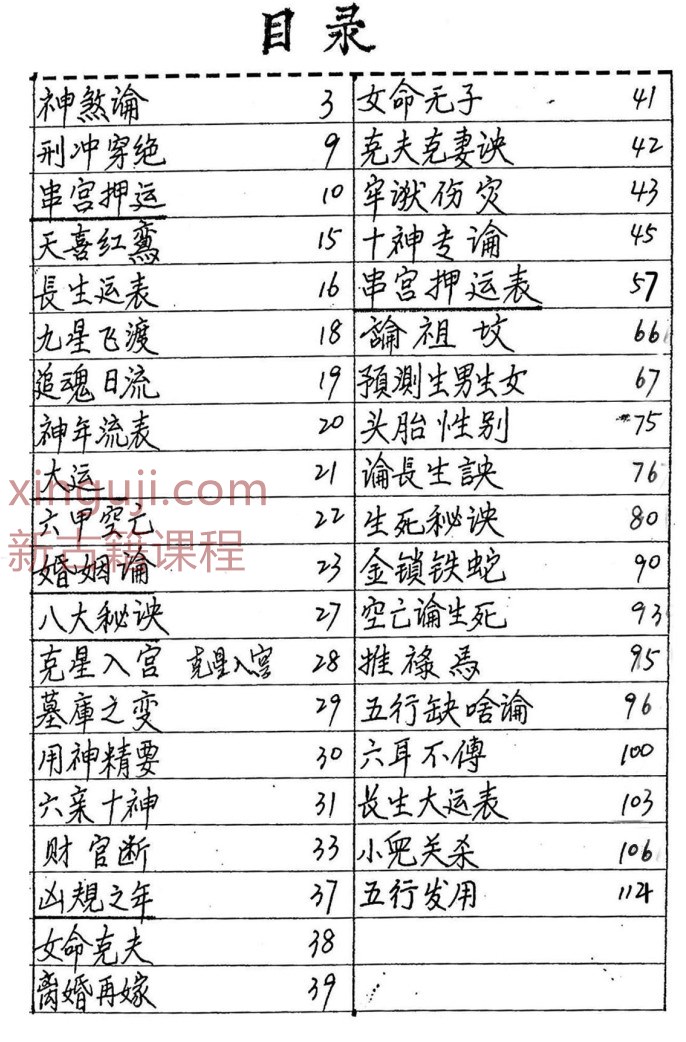 目录
神煞論 3
刑冲穿绝 9
串宫押运 10
天喜红鸾 15
長生运表 16
九星飞渡 18
追魂日流 19
神年流表 20
大运 21
六甲空亡 22
婚姻论 23
八大秘诀 27
克星入宫 克星入宫 28
墓庫之变 29
用神精要 30
六亲十神 31
财官断 33
凶規之年 37
女命克夫 38
离婚再嫁 39
女命无子 41
克夫克妻诀 42
牢狱伤灾 43
十神专论 45
串宫押运表 57
論祖坟 66
預测生男生女 67
头胎性别 75
论長生訣 76
生死秘诀 80
金锁铁蛇 90
空亡论生死 93
推禄馬 95
五行缺啥论 96
六耳不傳 100
长生大运表 103
小兒关杀 106
五行发用 114
xinguji.com
新古籍课程